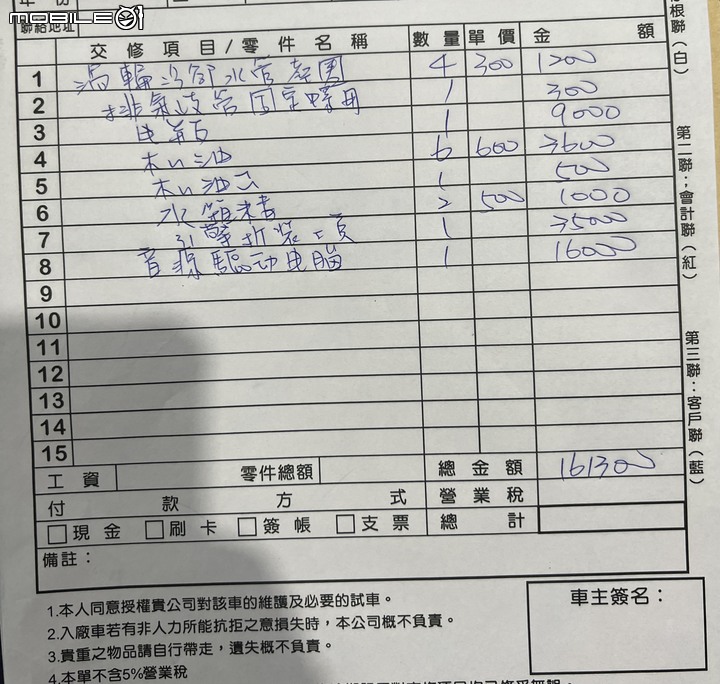 年 份
mobile01
聯絡地址
根聯(白)
交 修 項 目 / 零 件 名 稱 數 量 單 價 金 額
1 渦輪冷卻水管墊圈 4 300 1200
2 排氣歧管固定螺母 1 300
3 电瓶 1 9000
4 本い油 6 600 3600
5 本い油心 1 500
6 水箱精 2 500 1000
7 引擎折裝工資 1 35000
8 音源驅动电腦 1 16000
9
10
11
12
13
14
15
工 資 零件總額 總 金 額 161300
付 款 方 式 營 業 稅
現 金 刷 卡 簽 帳 支 票 總 計
備註:
第二聯:會計聯(紅)
第三聯:客戶聯(藍)
1.本人同意授權貴公司對該車的維護及必要的試車。
2.入廠車若有非人力所能抗拒之意損失時,本公司概不負責。
3.貴重之物品請自行帶走,遺失概不負責。
4.本單不含5%營業稅
車主簽名: